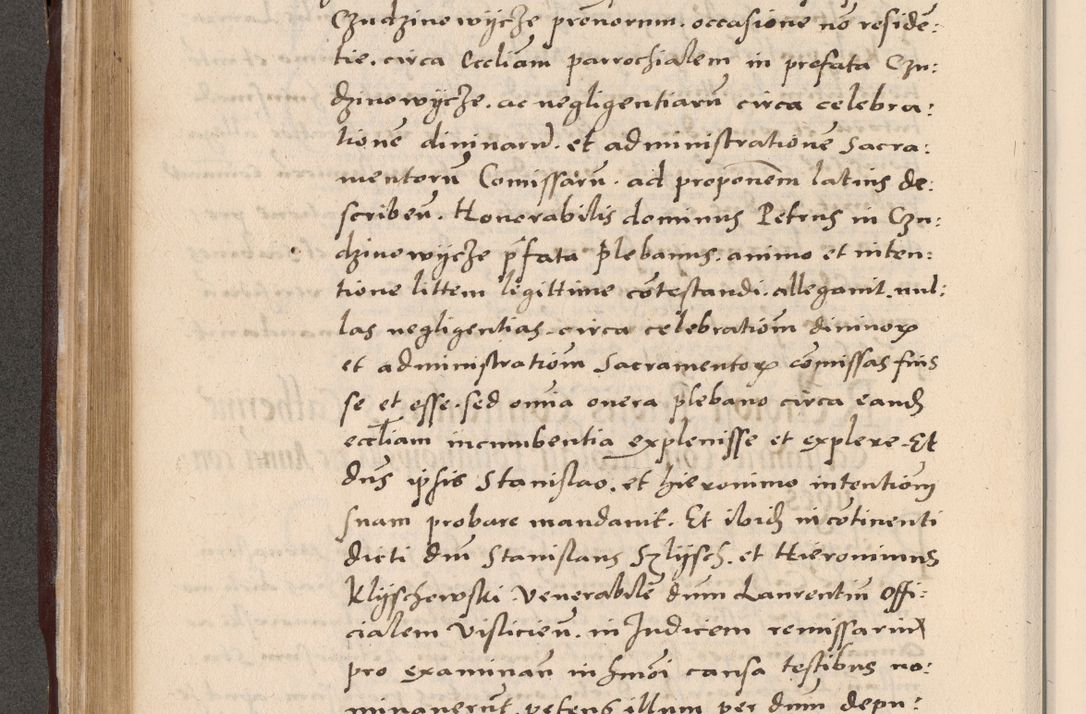 Czudzinowijcze prenorum. occasione nõ residẽ:
tie. circa Eccliam parrochialem in prefata Czu:
dzinowijcze. ac negligentiarũ circa celebra:
tionẽ diuinarũ. et administrationẽ Sacra:
mentorũ Comissarũ. ad proponem̃ latius de:
scribeñ. Honorabilis dominus Petrus in Czu:
dzinowijcze p̃fata Plebanus. animo et inten:
tione littem legittime cõtestandi. allegauit. nul:
las negligentias. circa celebratiom̃ diuinoꝝ
et administratiom̃ Sacramentoꝝ cõmissas fuis
se et esse. sed omnia onera plebano circa eandẽ
eccliam incumbentia explenisse et explere. Et
dñs ipsis Stanislao. et hieronimo intentiom̃
suam probare mandauit. Et ibidẽ incõtinenti
dicti dñi Stanislaus Szlijsch. et Hieronimus
Klijschewski Venerabilẽ dñum Laurentiũ Offi:
cialem Visliciеñ. in Judicem remissariũ
pro examinañ in hmõi causa testibus no:
minauerũt. petens illum per dñm depu: